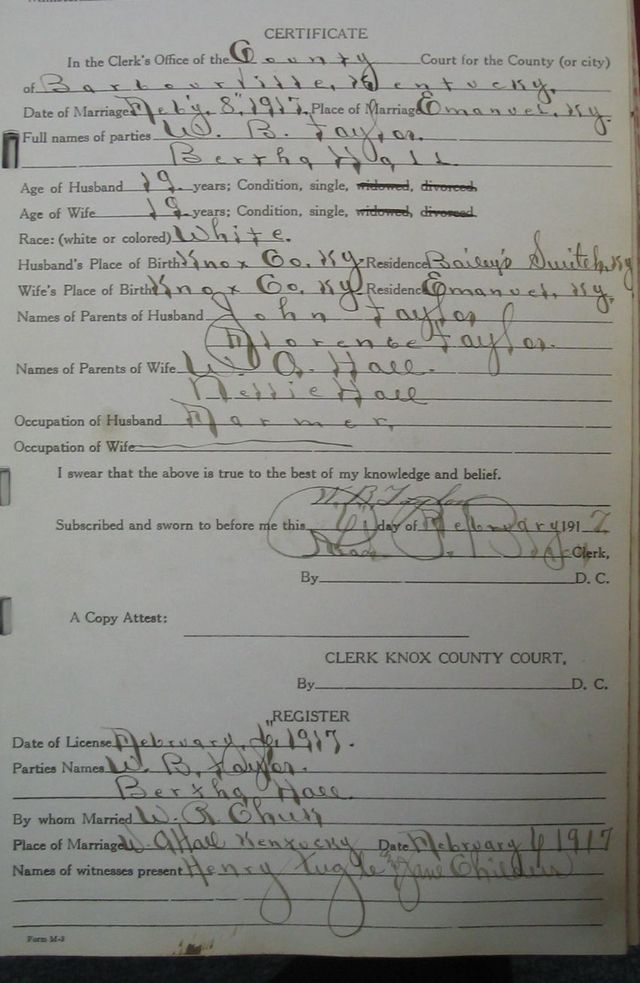 CERTIFICATE
In the Clerk's Office of the County Court for the County (or city)
of Barbourville, Kentucky.
Date of Marriage Feb'y. 8", 1917. Place of Marriage Emanuel, Ky.
Full names of parties W. B. Taylor.
Bertha Hall
Age of Husband 19 years; Condition, single, widowed, divorced
Age of Wife 19 years; Condition, single, widowed, divorced
Race: (white or colored) White.
Husband's Place of Birth Knox Co. Ky. Residence Bailey's Switch, Ky
Wife's Place of Birth Knox Co. Ky. Residence Emanuel, Ky.
Names of Parents of Husband John Taylor
Florence Taylor.
Names of Parents of Wife W. A. Hall.
Nellie Hall
Occupation of Husband Farmer,
Occupation of Wife
I swear that the above is true to the best of my knowledge and belief.
W. B. Taylor
Subscribed and sworn to before me this day of February 1917
Read P. Clerk,
By D. C.
A Copy Attest:
CLERK KNOX COUNTY COURT.
By D. C.
REGISTER
Date of License February, 6, 1917.
Parties Names W. B. Taylor.
Bertha Hall.
By whom Married W. R.
Place of Marriage W. A Hall Kentucky Date February 1917
Names of witnesses present Henry Tugle & Jane Childers
Form M-3